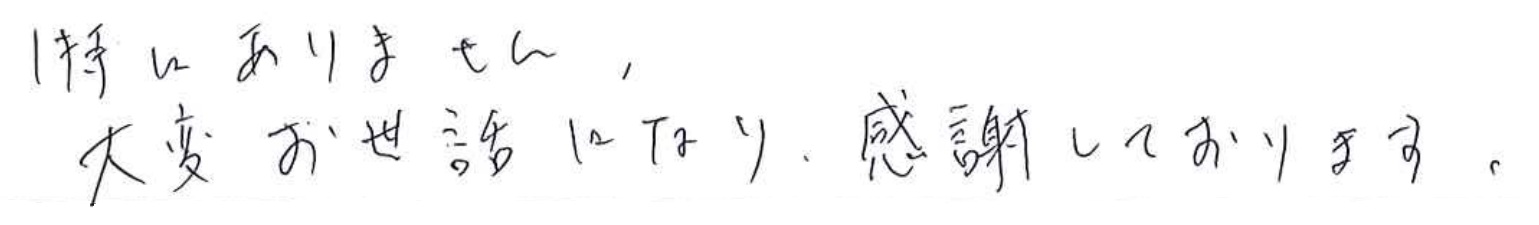 特にありません,
大変お世話になり、感謝しております。